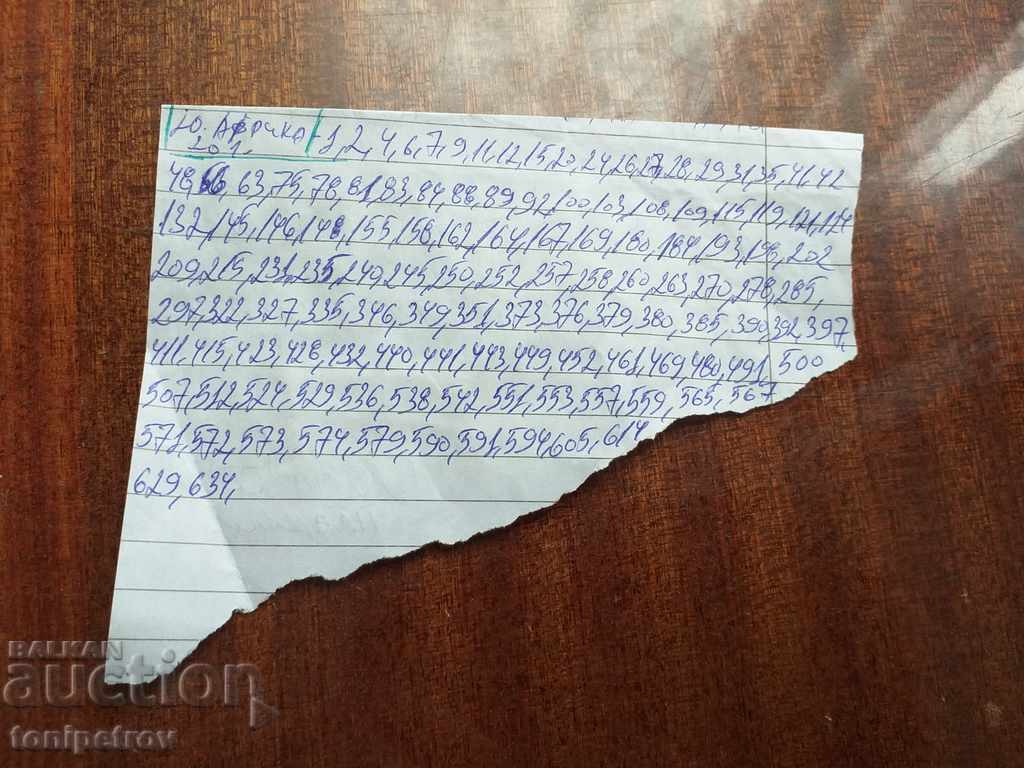 Ю. Африка 1,2,4,6,7,9,11,12,15,20,24,26,27,28,29,31,35,41,42
20 г.
48,56,63,75,78,81,83,84,88,89,92,100,103,108,109,115,119,121,124
132,145,146,148,155,158,162,164,167,169,180,184,193,198,202
209,215,231,235,240,245,250,252,257,258,260,263,270,278,285,
297,322,327,335,346,349,351,373,376,379,380,385,390,392,397,
411,415,423,428,432,440,441,443,449,452,461,469,480,491,500
507,512,524,529,536,538,542,551,553,557,559,565,567
571,572,573,574,579,590,591,594,605,614
629,634,
BALKAN
auction
tonipetrov